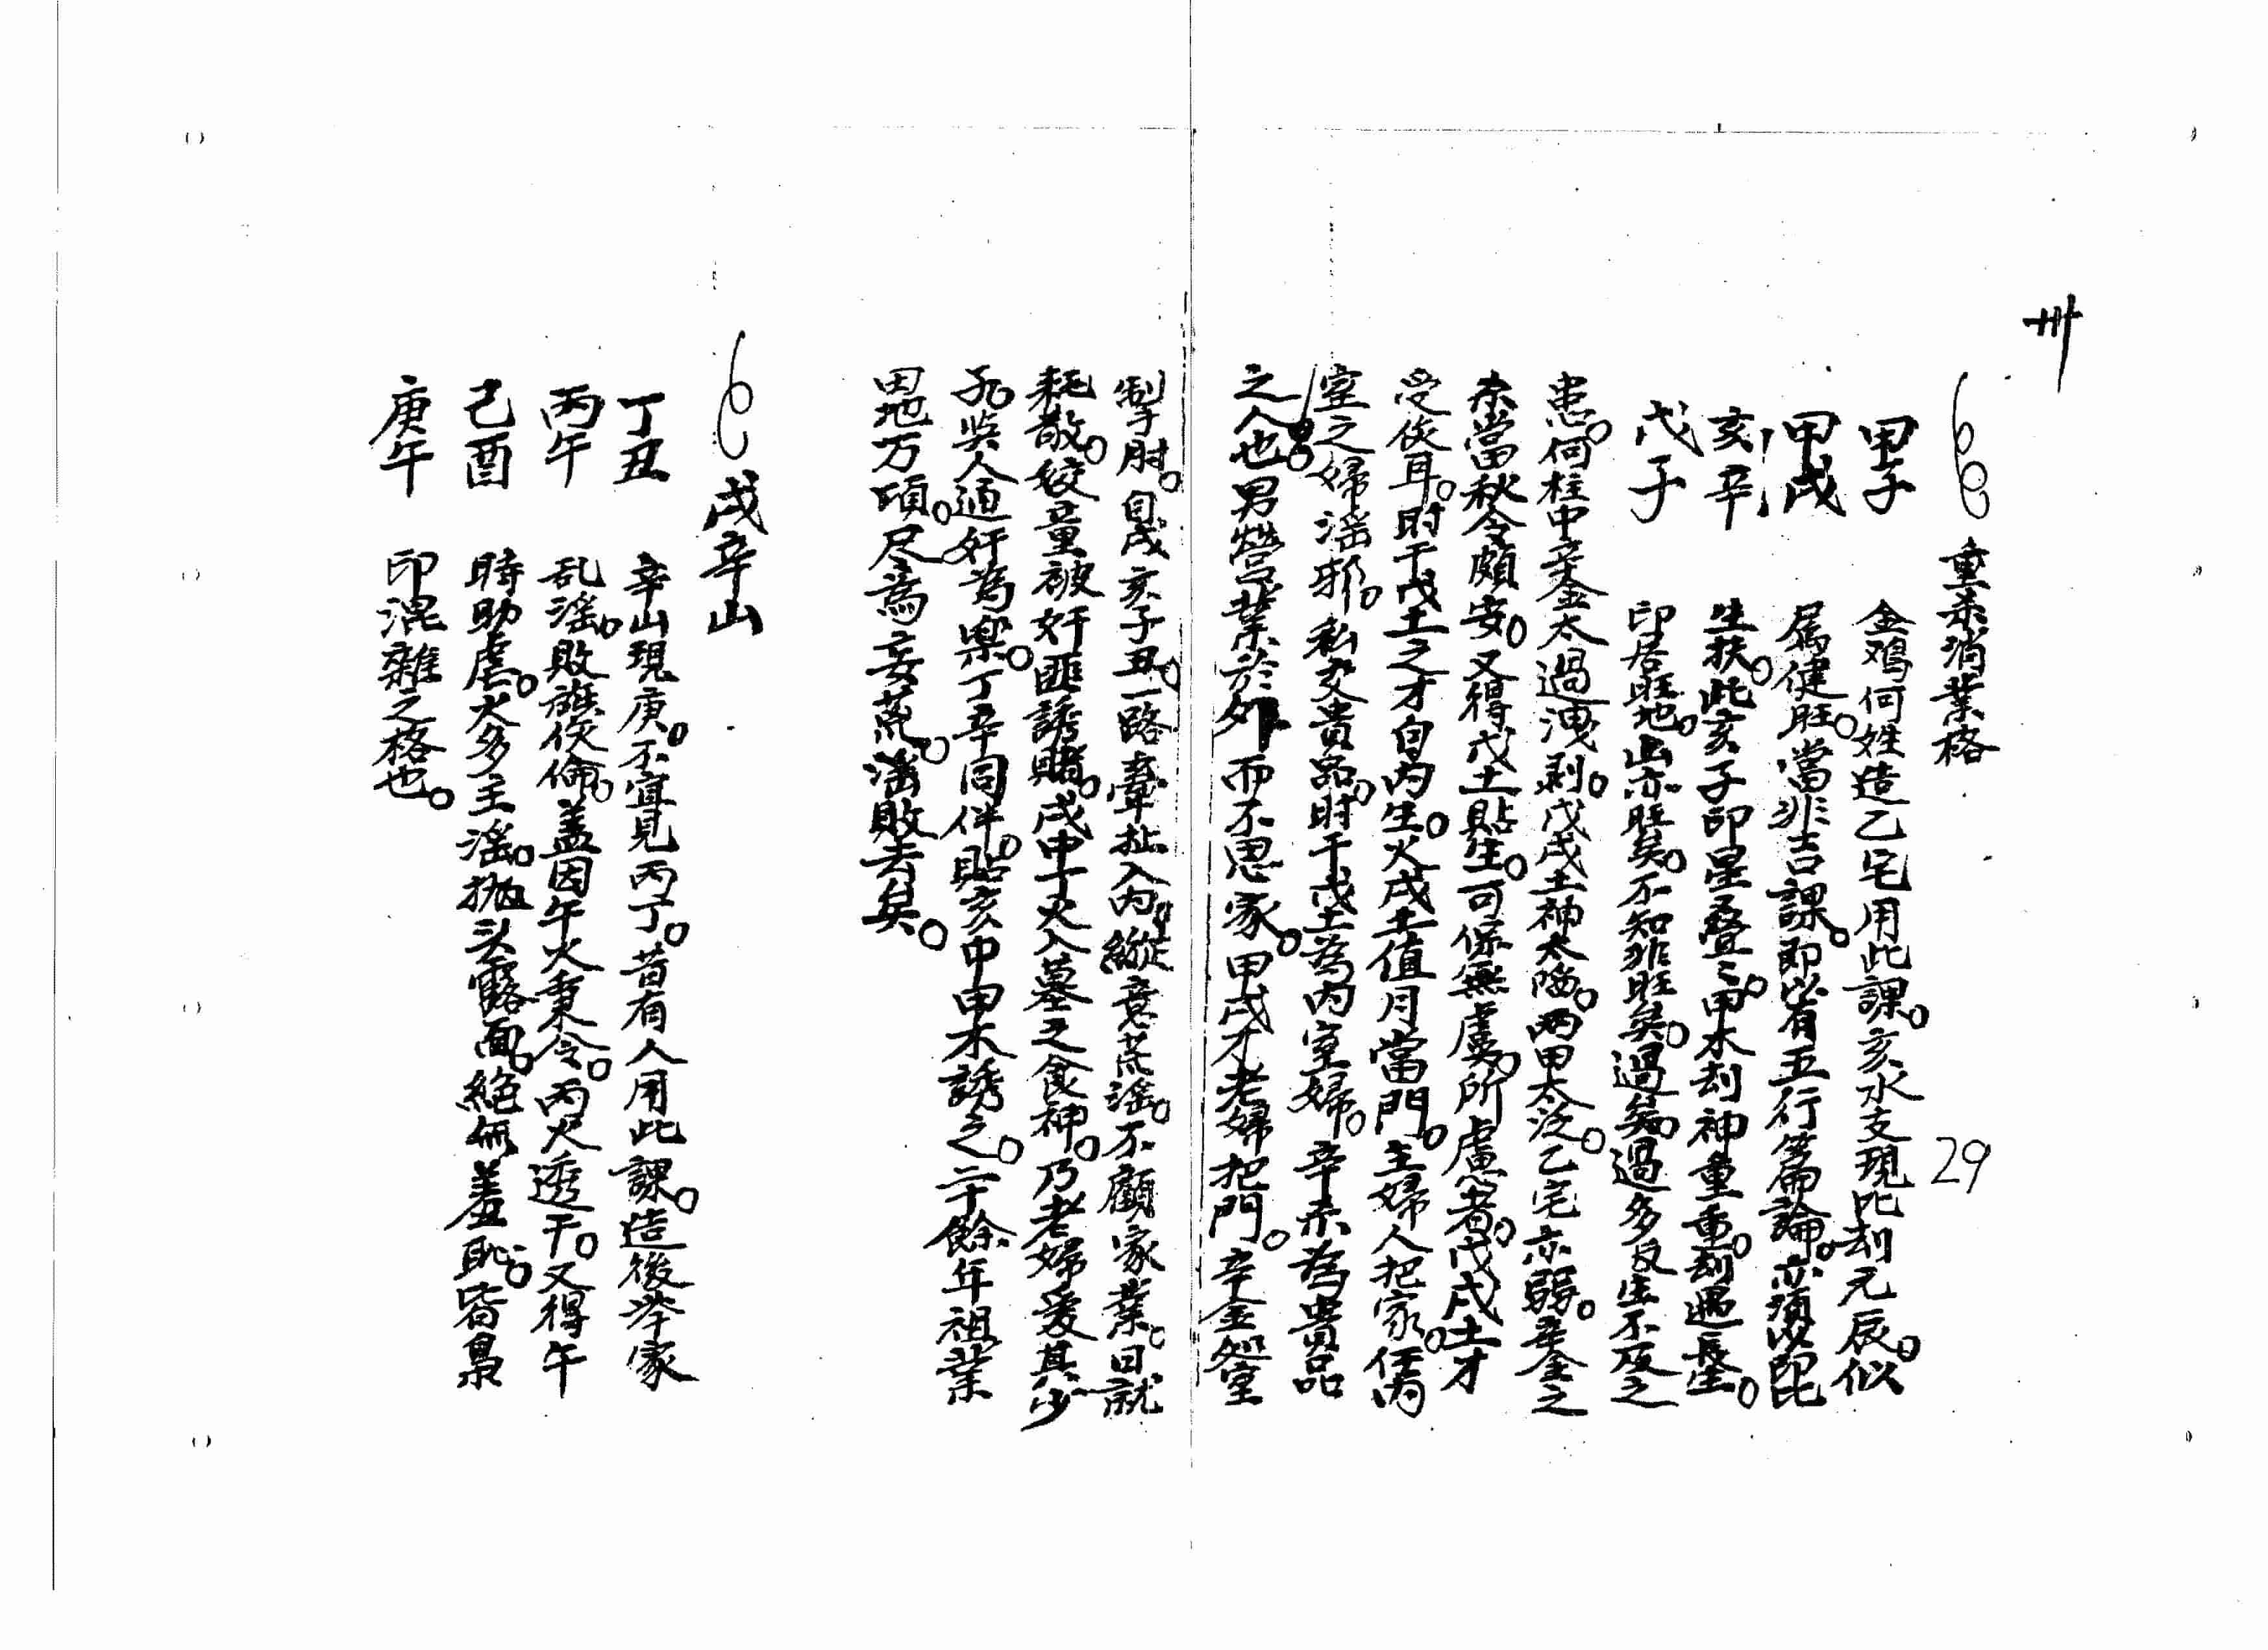 卅
重杀消業格
29
甲子 金鸡何姓造乙宅用此課。亥水支現比刦元辰。似
甲戌 属健旺。當非吉課。即以有五行篇論。亦須以印比
亥辛 生扶。此亥子印星叠之。甲木刦神重重。刦遇長生。
戊子 印居旺地。山亦旺矣。不知非旺矣。過矣。過多反生不及之
患。何柱中辛金太過洩剥。戊戌土神太陷。两甲太泛。乙宅亦弱。辛金之
杀當秋令頗安。又得戊土貼生。可保無虞。所慮者。戊戌土才
受侫耳。时干戊土之才自内生。火戌土值月當門。主婦人把家。任内
室之婦滛邪。私交貴品。时干戊土為内室婦。辛杀為貴品
之人也。男營業於外而不思家。甲戌才老婦把門。辛金
掣肘。自戌亥子丑。一路牽扯入内。縱意荒滛。不顧家業。日就
耗散。絞量被奸匪誘賭。戌中丁火入墓之食神。乃老婦愛其少
孔吳人通奸為樂。丁辛同伴。貼亥中甲木誘之。二十餘年祖業
田地万頃。尽為妄荒。滛敗去矣。
戌辛山
丁丑 辛山現庚。不宜見丙丁。昔有人用此課。造後举家
丙午 乱滛。敗誰侫倫。盖因午火秉令。丙火透干。又得午
己酉 時助虐。火多主滛。抛头露面。絶無羞恥。皆梟
庚午 印混雜之格也。